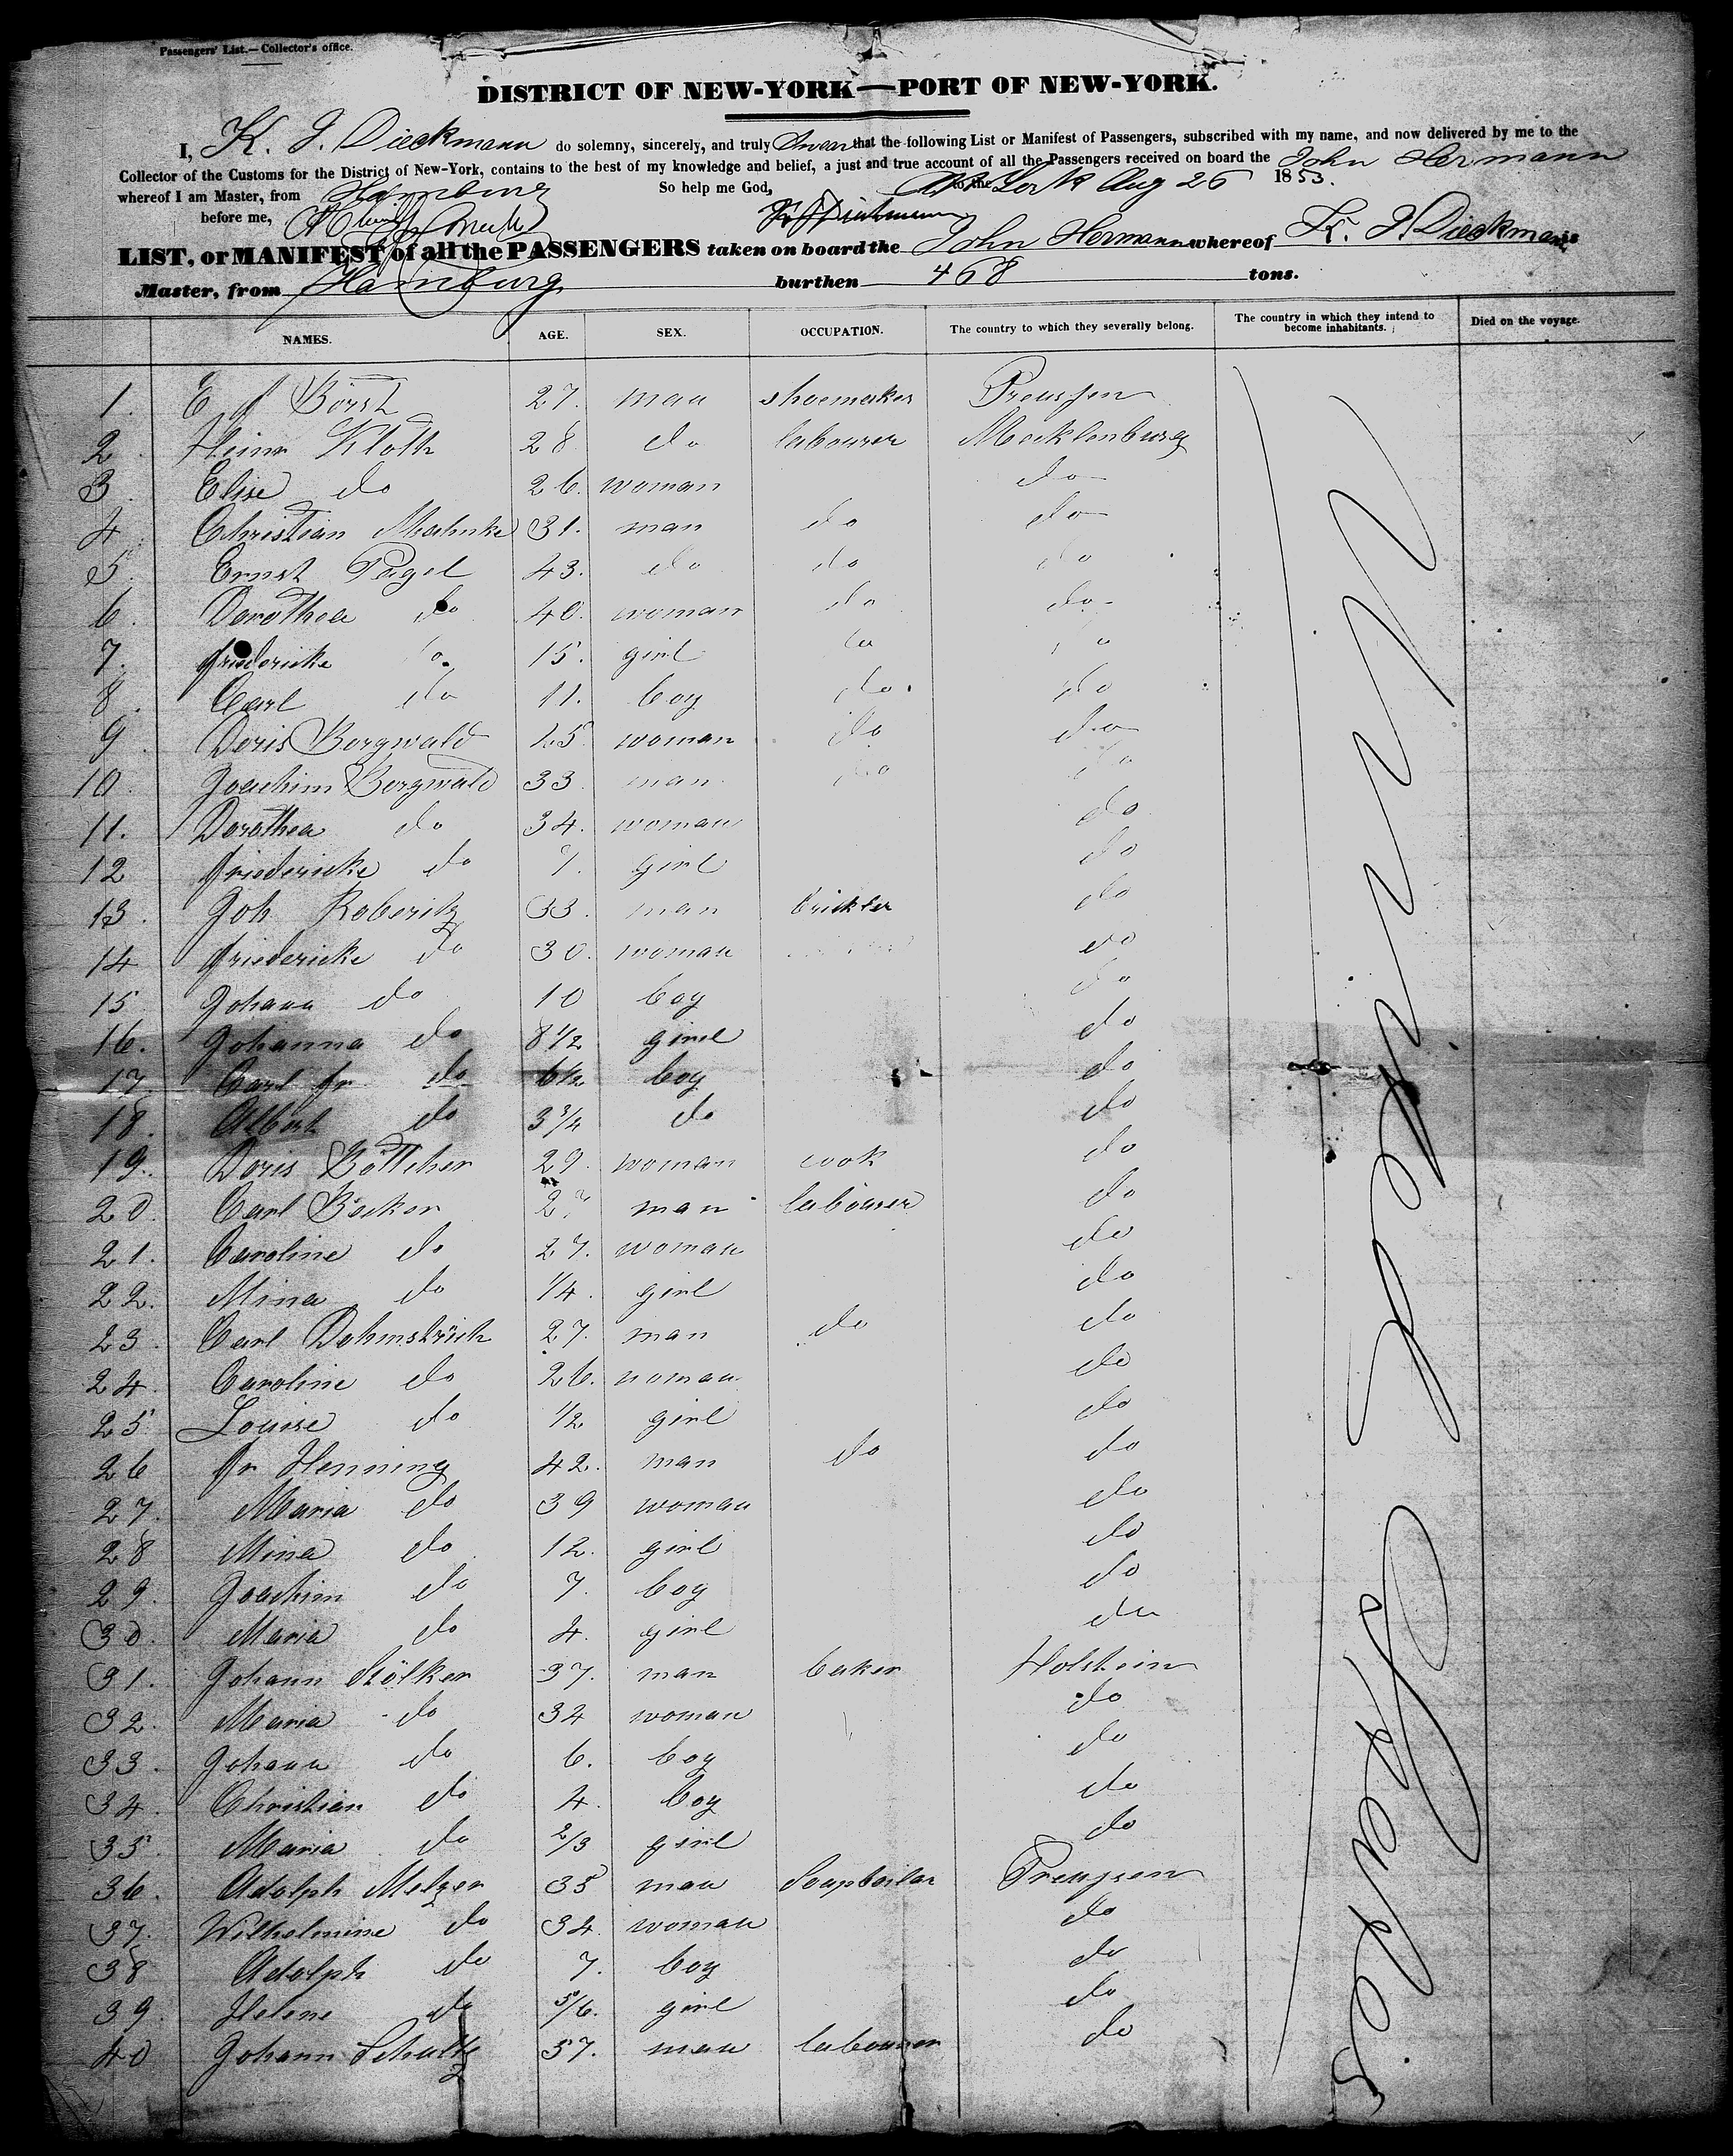 Passengers' List.—Collector's office.
DISTRICT OF NEW-YORK—PORT OF NEW-YORK.
I, K. J. Dieckmann do solemny, sincerely, and truly Swear that the following List or Manifest of Passengers, subscribed with my name, and now delivered by me to the
Collector of the Customs for the District of New-York, contains to the best of my knowledge and belief, a just and true account of all the Passengers received on board the John Hermann
whereof I am Master, from Hamburg So help me God, to the York Aug 26 1853.
before me, K. J. Dieckmann
LIST, or MANIFEST of all the PASSENGERS taken on board the John Hermann whereof K. J. Dieckmann is
Master, from Hamburg burthen 468 tons.
NAMES. AGE. SEX. OCCUPATION. The country to which they severally belong. The country in which they intend to become inhabitants. Died on the voyage.
1. E f Börst 27. man shoemaker Preussen
2. Heinr Kloth 28 do labourer Mecklenburg
3. Elise do 26. woman do
4. Christian Mahnke 31. man do do
5. Ernst Pagel 43. do do do
6. Dorothea do 40. woman do do
7. friedericke do 15. girl do do
8. Carl do 11. boy do. do
9. Doris Borgwald woman do do
10. Joachim Borgwald 33 man do do
11. Dorothea do 34. woman do
12 friedericke do 7. girl do
13. Joh Roberitz 33. man do
14 friedericke do 30. woman do
15 Johann do 10 boy do
16. Johanna do 8 1/2 girl do
17 Carl fr do 6 1/2 boy do
18. Albert do 3 3/4 do do
19. Doris Böttcher 29. woman cook do
20 Carl Becker man labourer do
21. Caroline do 27. woman do
22. Mina do 1/4. girl do
23. Carl Dahmströh 27. man do do
24. Caroline do 26. woman do
25 Louise do 1/2 girl do
26 fr Henning 42. man do do
27. Maria do 39 woman do
28 Mina do 12. girl do
29. Joachim do 7. boy do
30. Maria do 4. girl do
31. Johann Stölker 37. man baker Holstein
32. Maria do 34 woman do
33. Johann do 6. boy do
34. Christian do 4. boy do
35. Maria do 2/3 girl do
36. Adolph Melzer 35 man Soapboiler Preussen
37. Wilhelmine do 34. woman do
38 Adolph do 7. boy do
39. Helene do 5/6. girl do
40 Johann Schultz 37. man labourer do